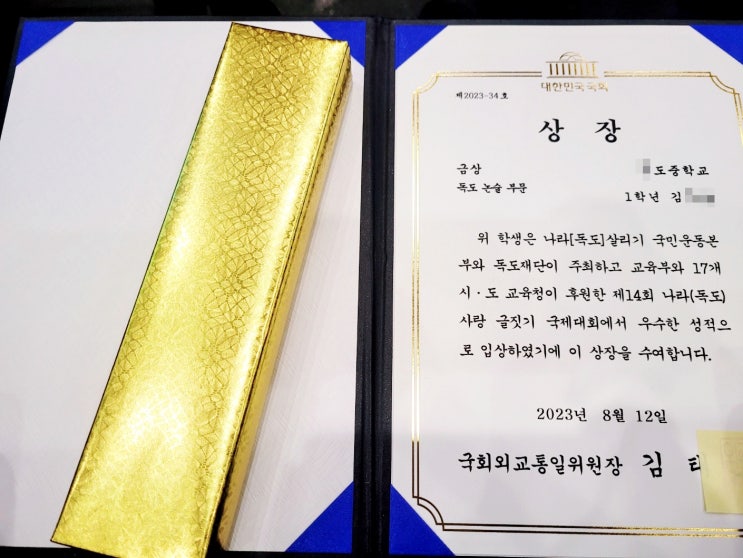 대한민국국회
제2023-34호
상 장
금상 도중학교
독도 논술 부문
1학년 김
위 학생은 나라[독도]살리기 국민운동본
부와 독도재단이 주최하고 교육부와 17개
시·도 교육청이 후원한 제14회 나라(독도)
사랑 글짓기 국제대회에서 우수한 성적으
로 입상하였기에 이 상장을 수여합니다.
2023년 8월 12일
국회외교통일위원장 김 태